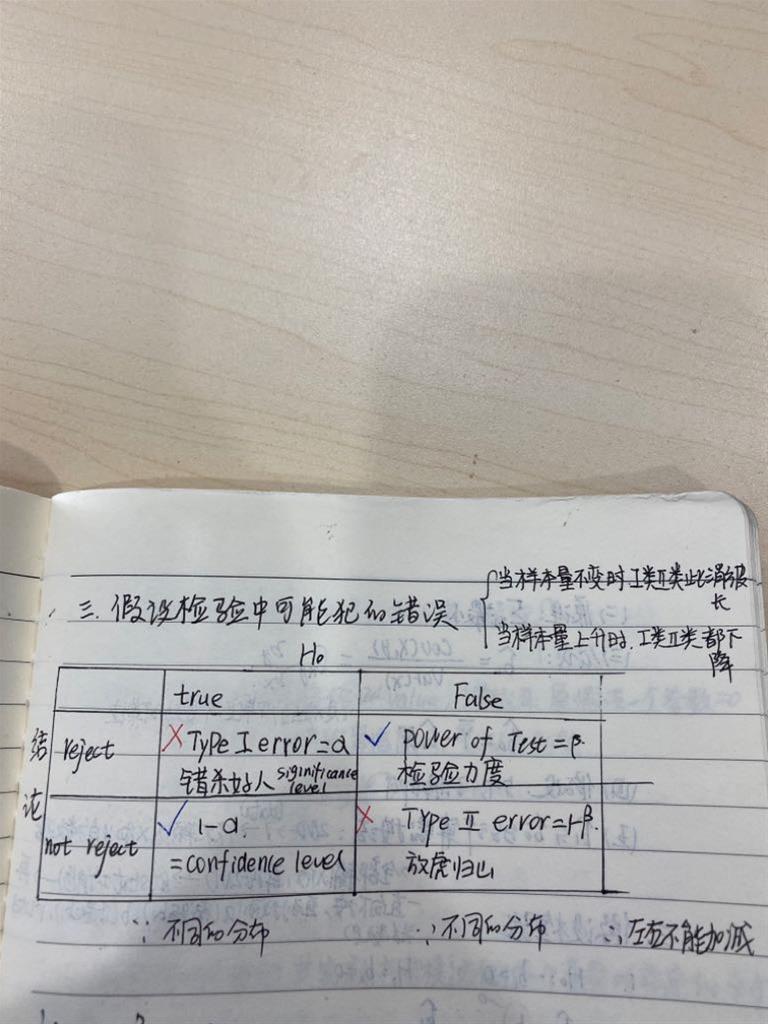 三. 假设检验中可能犯的错误
当样本量不变时 I类II类此消彼
长
当样本量上升时. I类II类都下
降
H₀
true False
结论
reject ✗ Type I error=α ✓ power of Test=β.
错杀好人 siginificance level 检验力度
not reject ✓ 1-α. ✗ Type II error=1-β.
=confidence level 放虎归山
∵不同的分布 ∵不同的分布 ∴左右不能加减